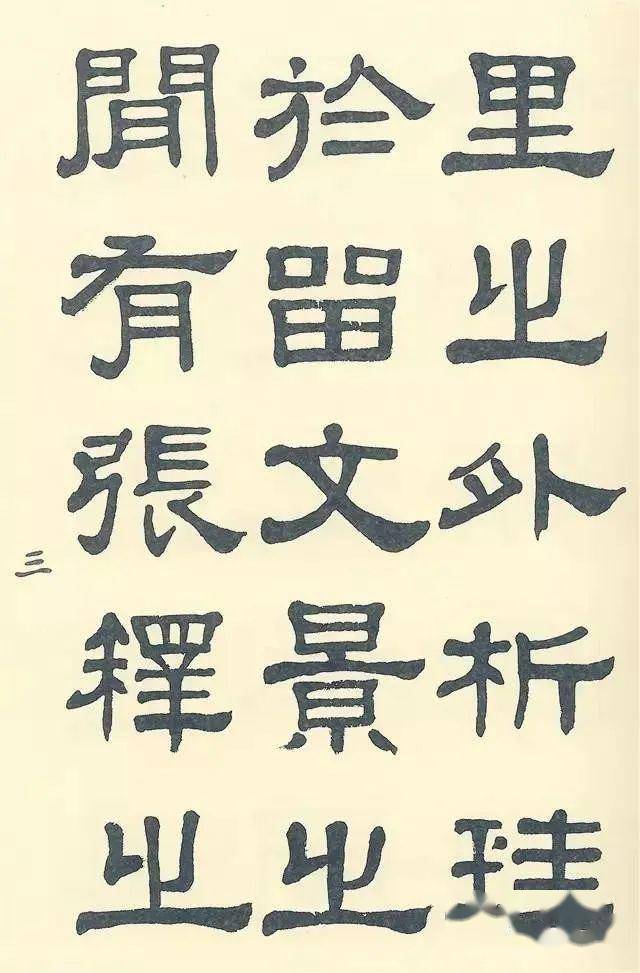 里之外析珪
於留文景之
閒有張釋之
三